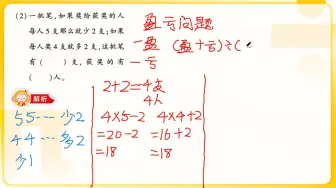 (2)一批笔,如果奖给获奖的人
每人5支那么就少2支;如果
每人奖4支就多2支,这批笔
有( )支,获奖的有
( )人。
解析
55---少2
44---多2
少1
2+2=4支
4人
4×5-2 4×4+2
=20-2 =16+2
=18 =18
盈亏问题
一盈 (盈+亏)÷(
一亏